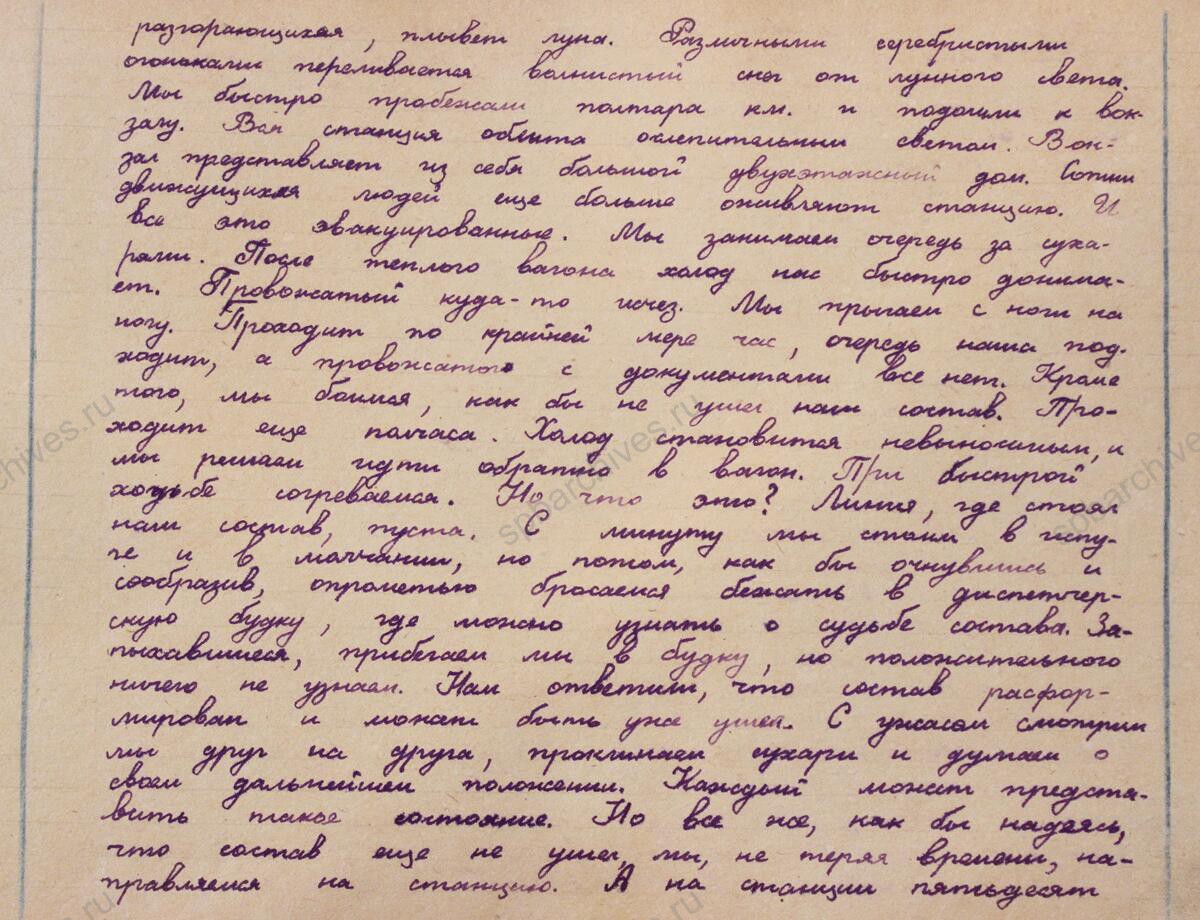 разгорающихся, плывет луна. Различными серебристыми
огоньками переливается волнистый снег от лунного света.
Мы быстро пробежали полтара км. и подошли к вок-
залу. Вся станция облита ослепительным светом. Вок-
зал представляет из себя большой двухэтажный дом. Сотни
движущихся людей еще больше оживляют станцию. И
все это эвакуированные. Мы занимаем очередь за суха-
рями. После теплого вагона холод нас быстро донима-
ет. Провожатый куда-то исчез. Мы прыгаем с ноги на
ногу. Проходит по крайней мере час, очередь наша под-
ходит, а провожатого с документами все нет. Кроме
того, мы боимся, как бы не ушел наш состав. Про-
ходит еще полчаса. Холод становится невыносимым, и
мы решаем идти обратно в вагон. При быстрой
ходьбе согреваемся. Но что это? Линия, где стоял
наш состав, пуста. С минуту мы стоим в испу-
ге и в молчании, но потом, как бы очнувшись и
сообразив, опрометью бросаемся бежать в диспетчер-
скую будку, где можно узнать о судьбе состава. За-
пыхавшиеся, прибегаем мы в будку, но положительного
ничего не узнаем. Нам ответили, что состав расфор-
мирован и может быть уже ушел. С ужасом смотрим
мы друг на друга, проклинаем сухари и думаем о
своем дальнейшем положении. Каждый может предста-
вить такое состояние. Но все же, как бы надеясь,
что состав еще не ушел, мы, не теряя времени, на-
правляемся на станцию. А на станции пятьдесят
spbarchives.ru